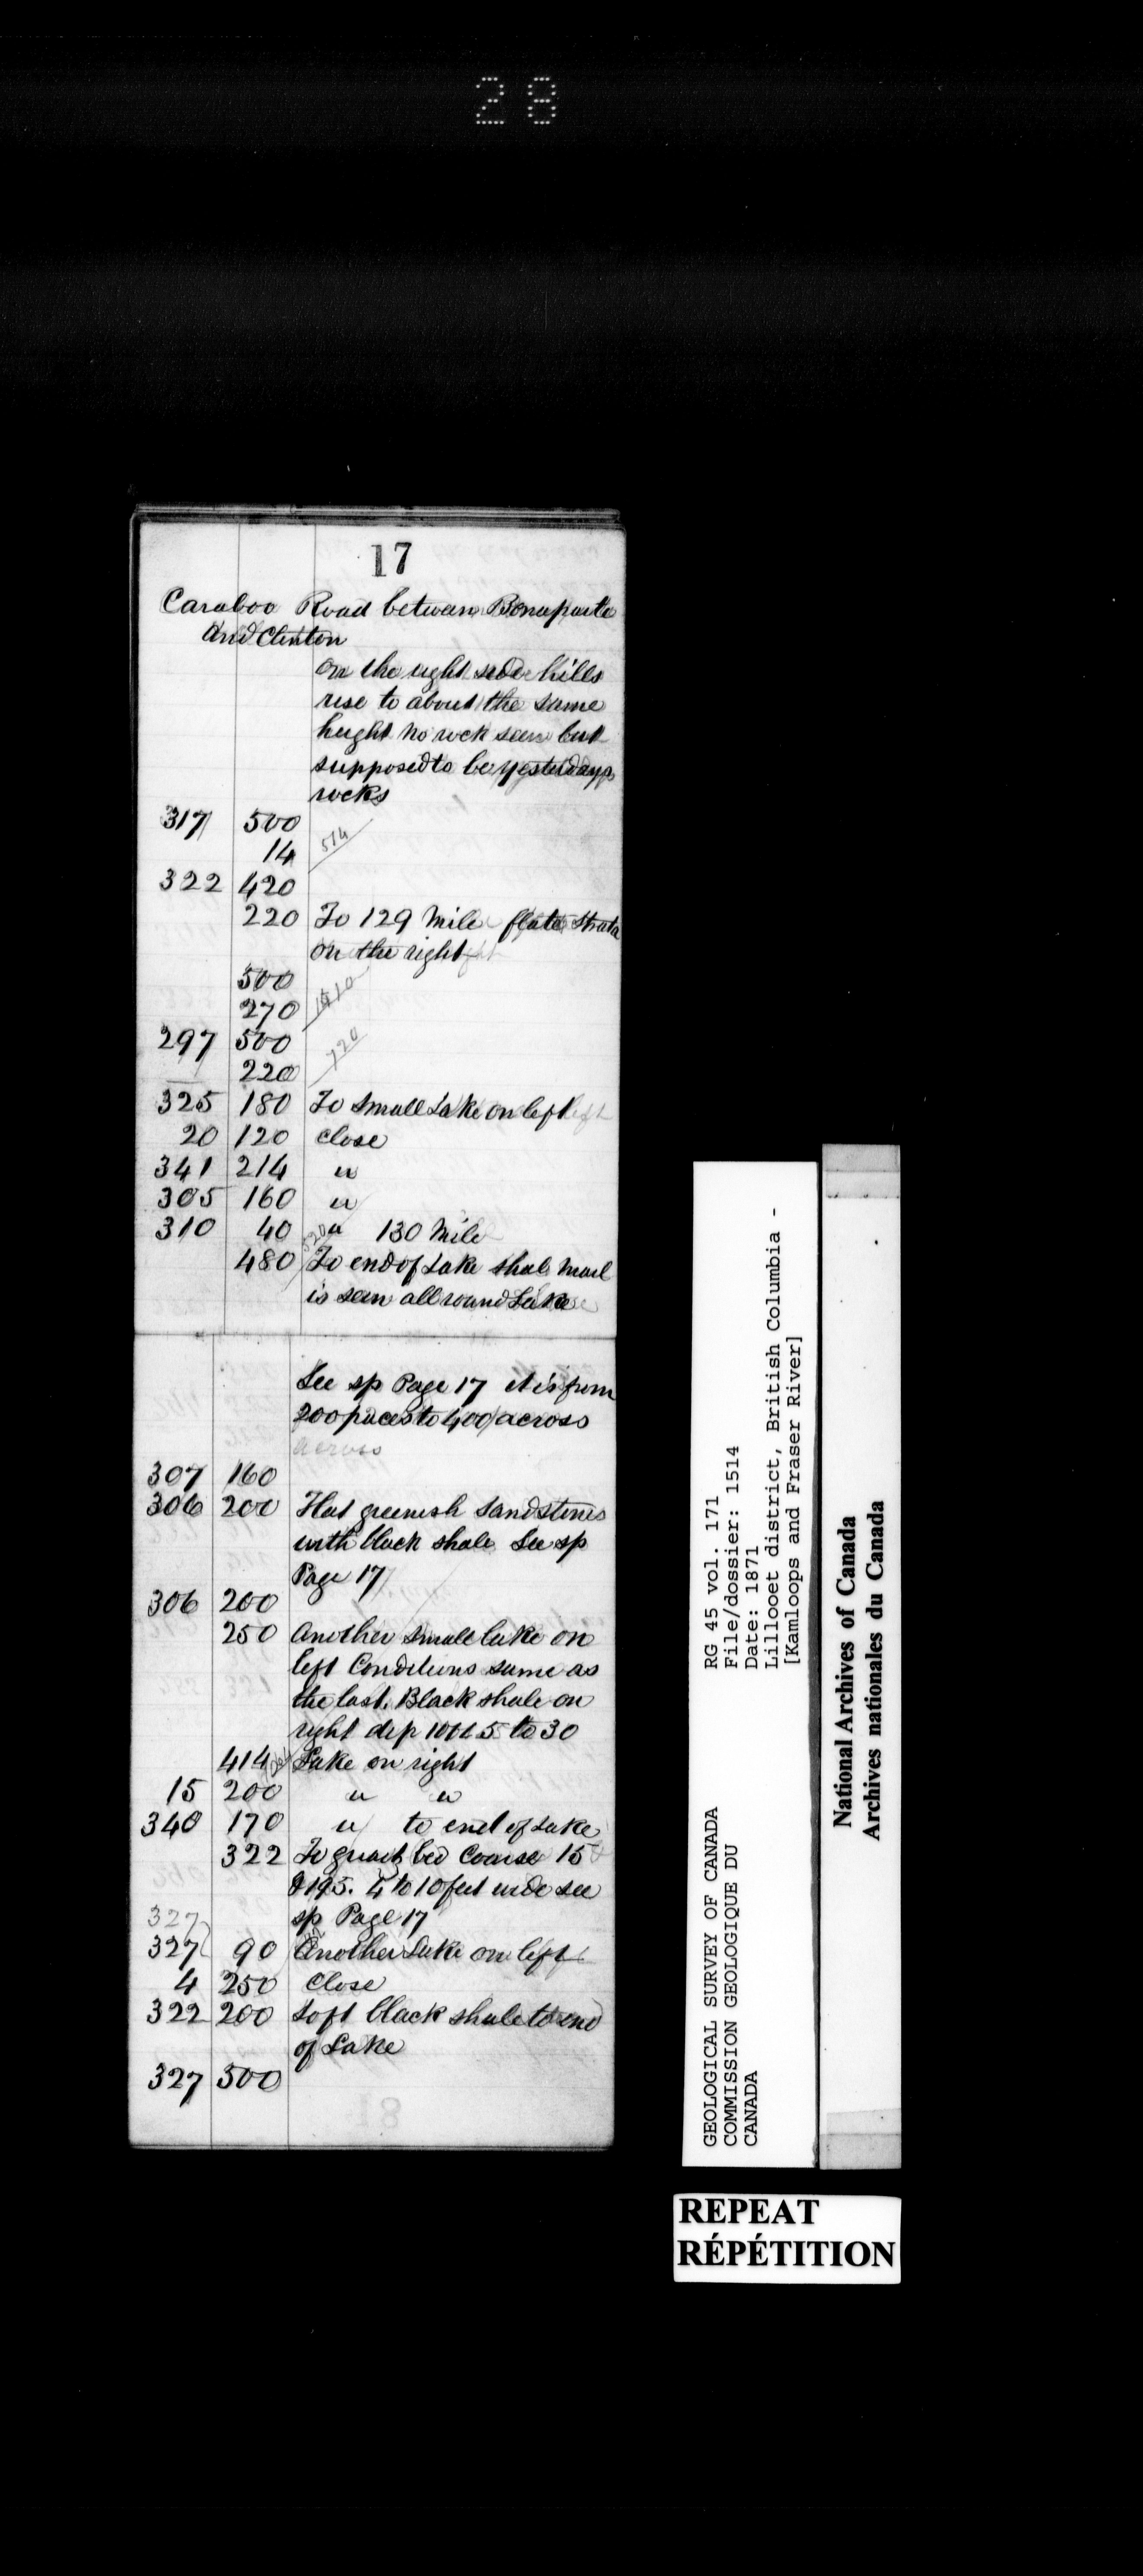 28
17
Caraboo Road between Bonaparte
and Clinton
on the right side hills
rise to about the same
height no rock seen but
supposed to be yesterdays
rocks
317 500
14 514
322 420
220 To 129 Mile flat strata
on the right
500
270
297 500
220 720
325 180 To small Lake on left
20 120 close
341 214 "
305 160 "
310 40 " 130 Mile
480 To end of Lake shel marl
is seen all round Lake
See sp Page 17 it is from
200 paces to 400 across
across
307 160
306 200 Flat greenish Sandstones
with black shale See sp
Page 17
306 200
250 Another small lake on
left Conditions same as
the last. Black shale on
right dip 105 to 30
414 Lake on right
15 200 " "
340 170 " to end of Lake
322 To quartz bed Course 15
& 195. 4 to 10 feet wide see
327 sp Page 17
327 90 Another Lake on left
4 250 Close
322 200 Soft black shale to end
of Lake
327 500
81
GEOLOGICAL SURVEY OF CANADA
COMMISSION GEOLOGIQUE DU
CANADA
RG 45 vol. 171
File/dossier: 1514
Date: 1871
Lillooet district, British Columbia -
[Kamloops and Fraser River]
National Archives of Canada
Archives nationales du Canada
REPEAT
RÉPÉTITION